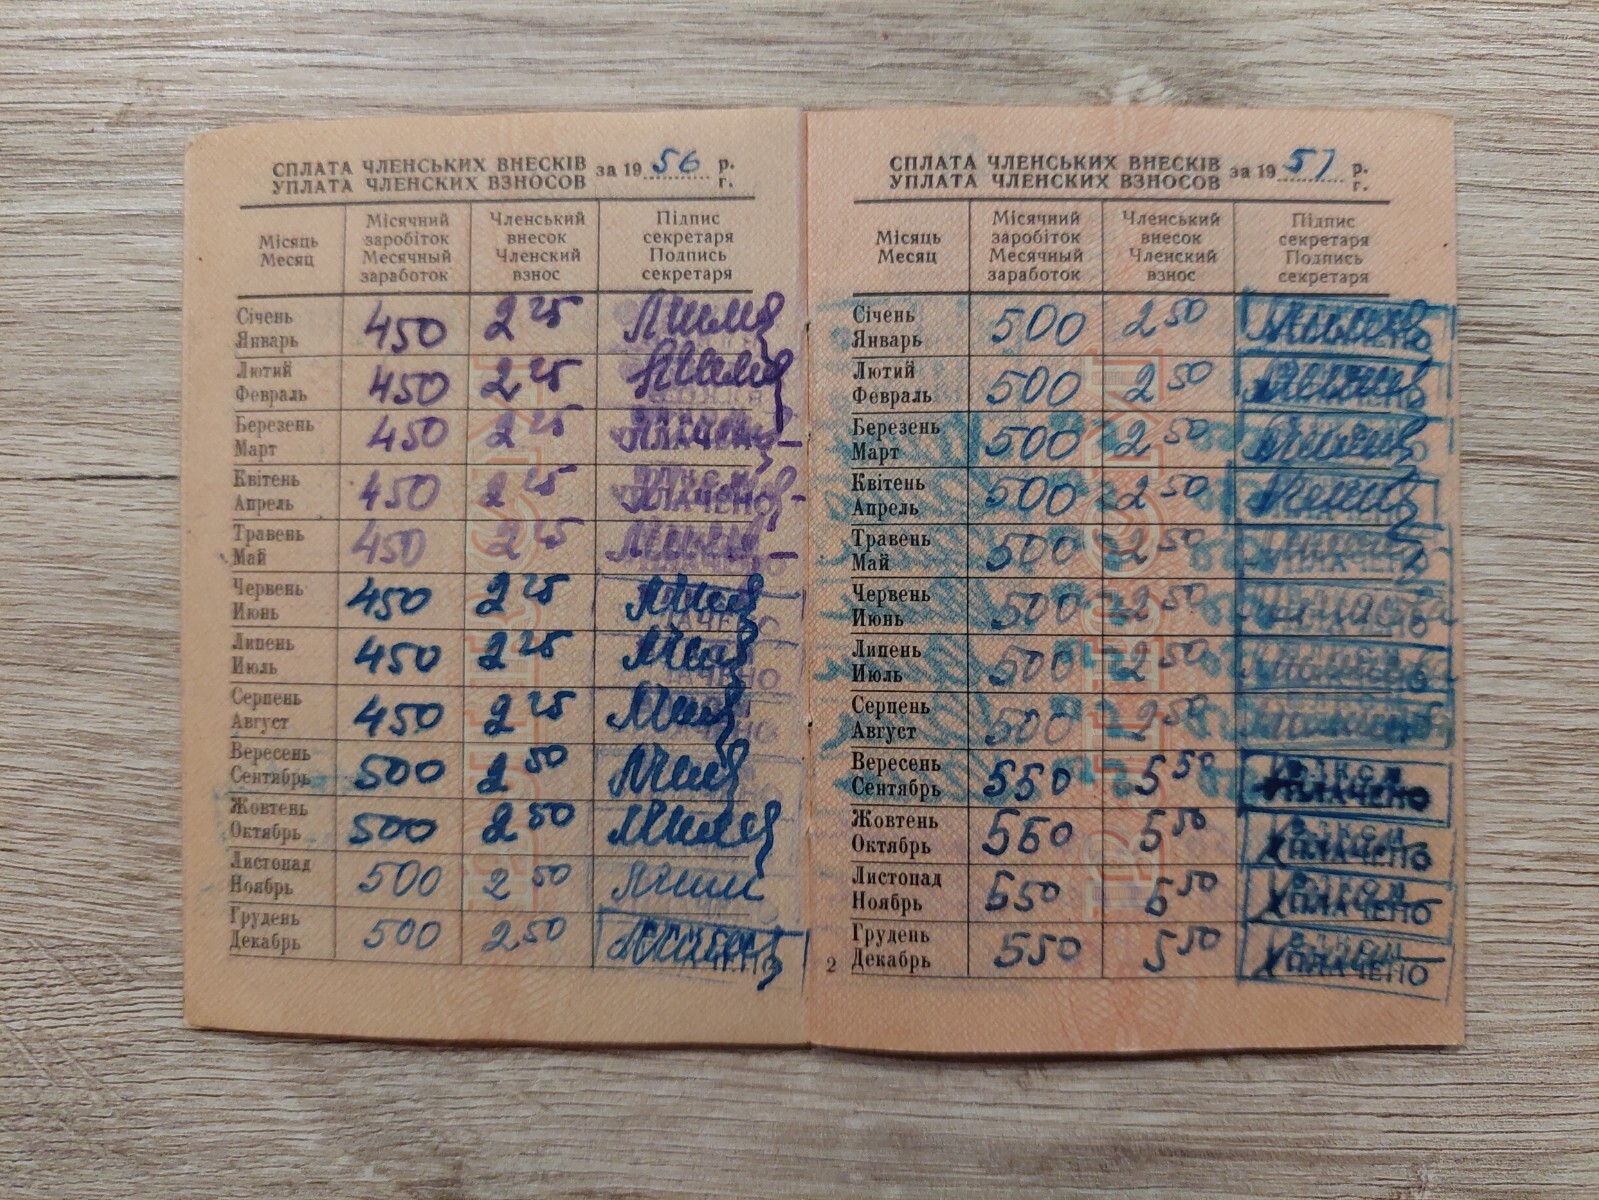 СПЛАТА ЧЛЕНСЬКИХ ВНЕСКІВ
УПЛАТА ЧЛЕНСКИХ ВЗНОСОВ за 19 56 р.
г.
Місяць
Месяц
Місячний
заробіток
Месячный
заработок
Членський
внесок
Членский
взнос
Підпис
секретаря
Подпись
секретаря
Січень
Январь 450 2 25
Лютий
Февраль 450 2 25
Березень
Март 450 2 25
Квітень
Апрель 450 2 25
Травень
Май 450 2 25
Червень
Июнь 450 2 25
Липень
Июль 450 2 25
Серпень
Август 450 2 25
Вересень
Сентябрь 500 2 50
Жовтень
Октябрь 500 2 50
Листопад
Ноябрь 500 2 50
Грудень
Декабрь 500 2,50
СПЛАТА ЧЛЕНСЬКИХ ВНЕСКІВ
УПЛАТА ЧЛЕНСКИХ ВЗНОСОВ за 19 57 р.
г.
Місяць
Месяц
Місячний
заробіток
Месячный
заработок
Членський
внесок
Членский
взнос
Підпис
секретаря
Подпись
секретаря
Січень
Январь 500 2 50
Лютий
Февраль 500 2 50
Березень
Март 500 2 50
Квітень
Апрель 500 2 50
Травень
Май 500 2 50
Червень
Июнь 500 2 50
Липень
Июль 500 2 50
Серпень
Август 500 2 50
Вересень
Сентябрь 550 5 50
Жовтень
Октябрь 550 5 50
Листопад
Ноябрь 550 5 50
Грудень
Декабрь 550 5 50
2